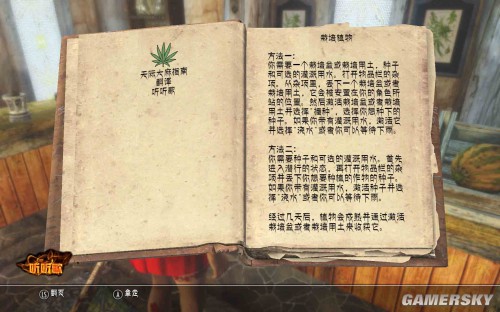 天际大麻指南
翻译
听听歌
栽培植物
方法一：
你需要一个栽培盆或者栽培用土，种子
和可选的灌溉用水。打开物品栏的杂
项。从杂项里，丢下一个栽培盆或者
栽培用土，它会被安置在你的角色所
站的位置。然后激活栽培盆或者栽培
用土并选择"播种"，选择你想种下的
种子。如果你带有灌溉用水，激活它
并选择"浇水"或者你可以等待下雨。
方法二：
你需要种子和可选的灌溉用水。首先
进入潜行的状态，再打开物品栏的杂
项并丢下你想要种植的作物的种子。
如果你带有灌溉用水，激活种子并选
择"浇水"或者你可以等待下雨。
经过几天后，植物会成熟并通过激活
栽培盆或者栽培用土来收获它。
听听歌
翻页
拿走
GAMERSKY